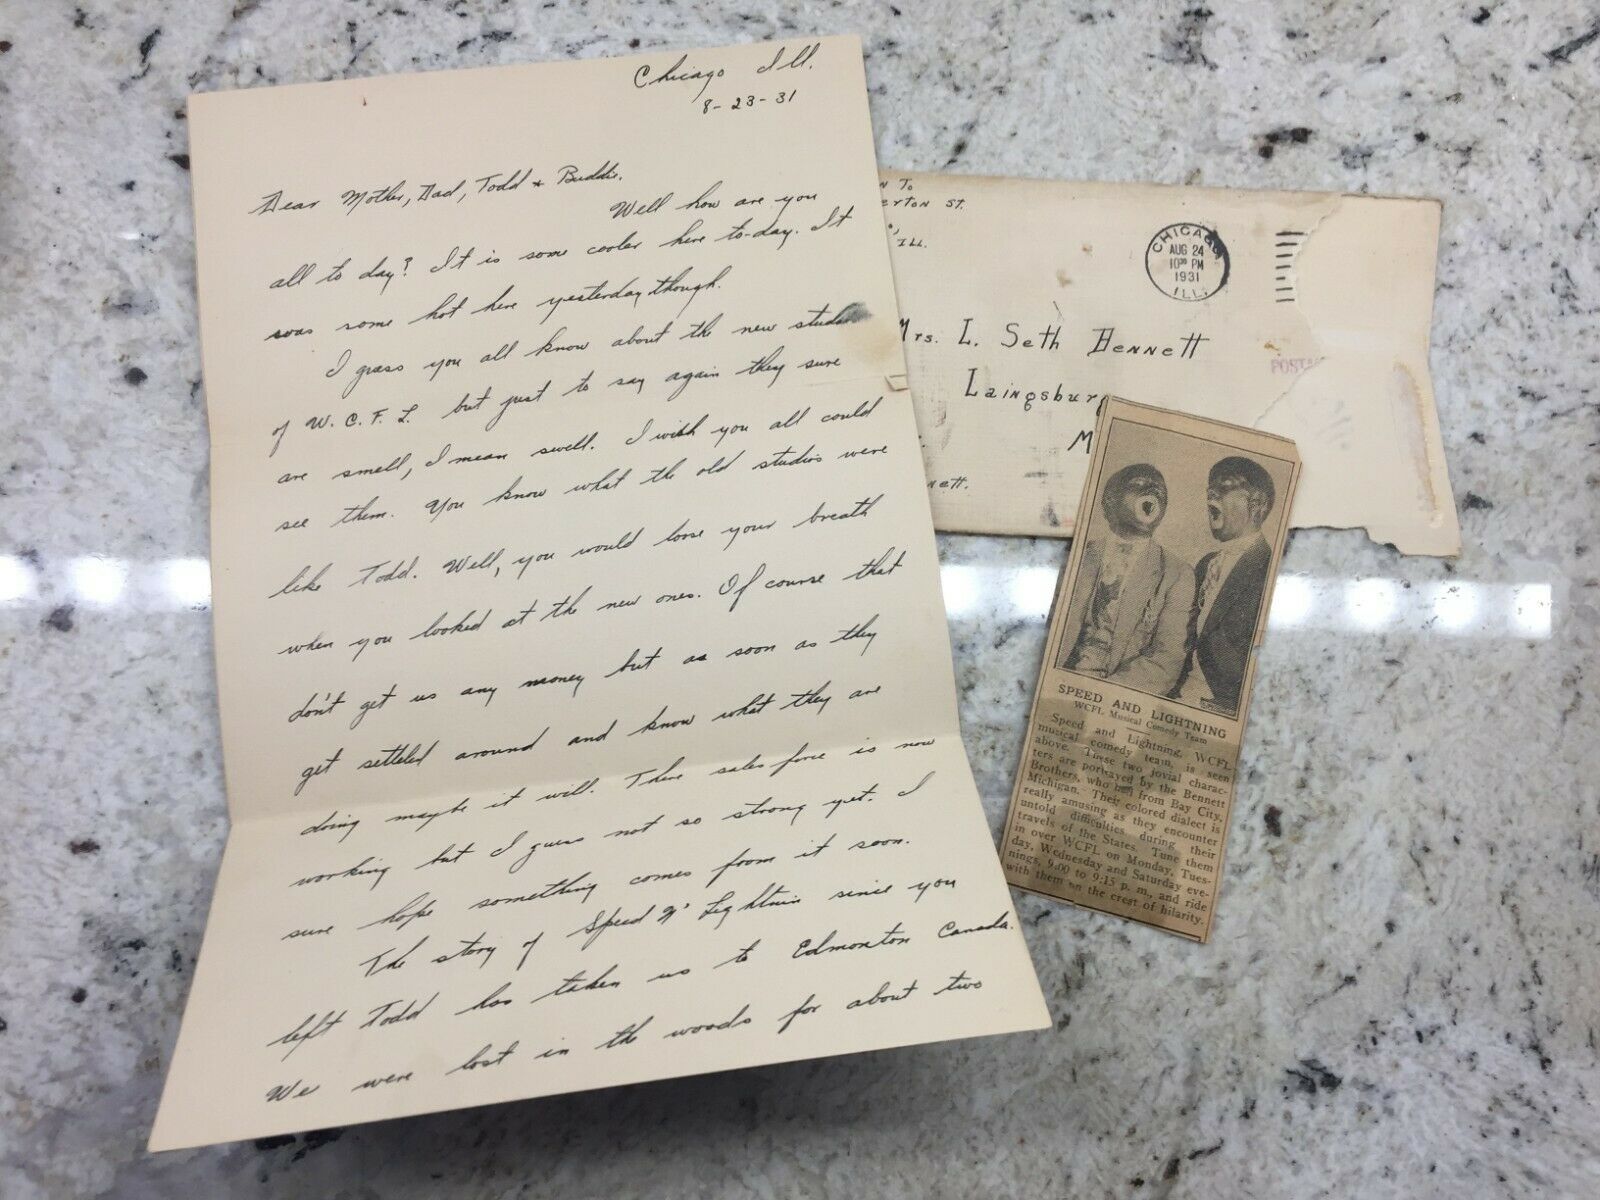 Chicago Ill.
8-23-31
Dear Mother, Dad, Todd & Buddie.
Well how are you
all to day? It is some cooler here to-day. It
was some hot here yesterday though.
I guess you all know about the new
of W.C.F.L. but just to say again they sure
are smell, I mean swell. I wish you all could
see them. You know what the old studios were
like Todd. Well, you would lose your breath
when you looked at the new ones. Of course that
don't get us any money but as soon as they
get settled around and know what they are
doing maybe it will. There sales force is now
working but I guess not so strong yet. I
sure hope something comes from it soon.
The story of Speed N' Lightnin since you
left Todd has taken us to Edmonton Canada.
We were lost in the woods for about two
N TO
ERTON ST.
ILL.
CHICAGO
AUG 24
10 30 PM
1931
ILL.
Mrs. L. Seth Bennett
Laingsbur
M
nett.
POSTA
SPEED AND LIGHTNING
WCFL Musical Comedy Team
Speed and Lightning, WCFL
musical comedy team, is seen
above. These two jovial charac-
ters are portrayed by the Bennett
Brothers, who hail from Bay City,
Michigan. Their colored dialect is
really amusing as they encounter
untold difficulties during their
travels of the States. Tune them
in over WCFL on Monday, Tues-
day, Wednesday and Saturday eve-
nings, 9.00 to 9:15 p. m., and ride
with them on the crest of hilarity.